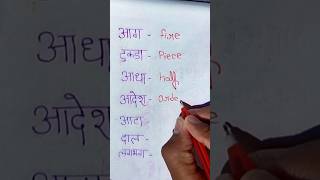 आग - fire
टुकडा - Piece
आधा - half
आदेश - orde
आटा -
दाल -
लगभग -